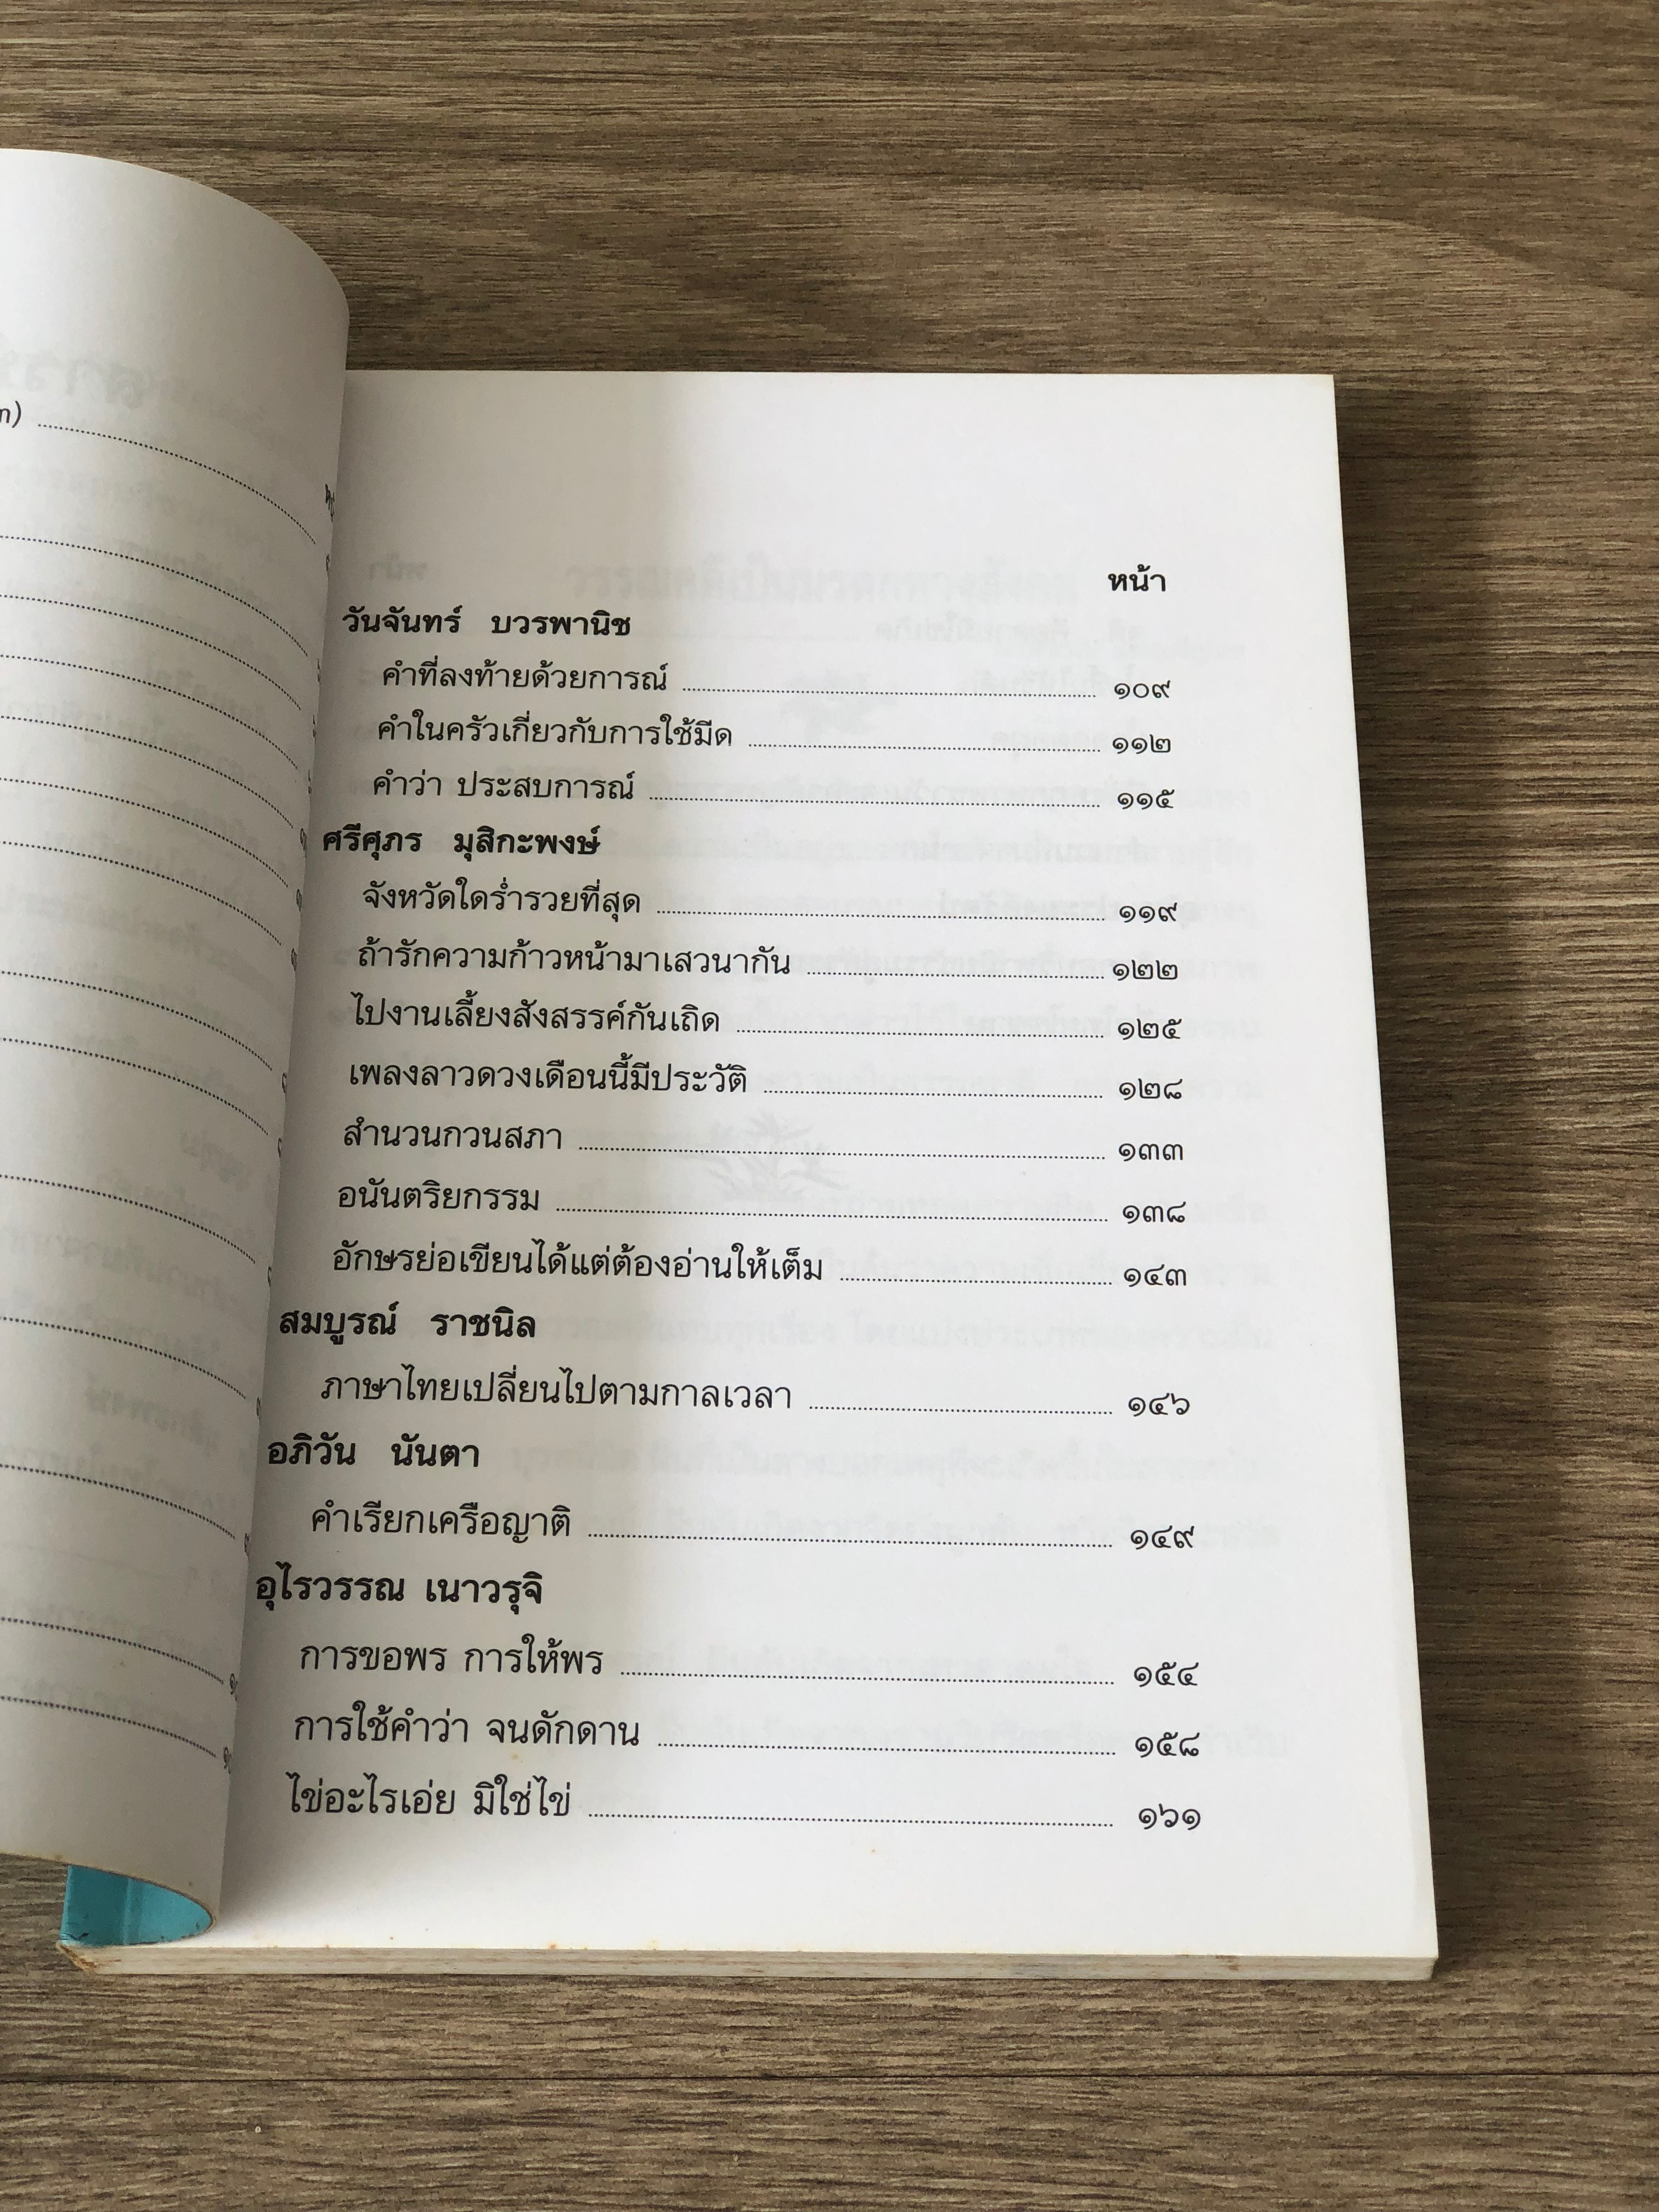 หน้า
วันจันทร์ บวรพานิช
คำที่ลงท้ายด้วยการณ์ ๑๐๙
คำในครัวเกี่ยวกับการใช้มีด ๑๑๒
คำว่า ประสบการณ์ ๑๑๕
ศรีศุภร มุสิกะพงษ์
จังหวัดใดร่ำรวยที่สุด ๑๑๙
ถ้ารักความก้าวหน้ามาเสวนากัน ๑๒๒
ไปงานเลี้ยงสังสรรค์กันเถิด ๑๒๕
เพลงลาวดวงเดือนนี้มีประวัติ ๑๒๘
สำนวนกวนสภา ๑๓๓
อนันตริยกรรม ๑๓๘
อักษรย่อเขียนได้แต่ต้องอ่านให้เต็ม ๑๔๓
สมบูรณ์ ราชนิล
ภาษาไทยเปลี่ยนไปตามกาลเวลา ๑๔๖
อภิวัน นันตา
คำเรียกเครือญาติ ๑๔๙
อุไรวรรณ เนาวรุจิ
การขอพร การให้พร ๑๕๔
การใช้คำว่า จนดักดาน ๑๕๘
ไข่อะไรเอ่ย มิใช่ไข่ ๑๖๑